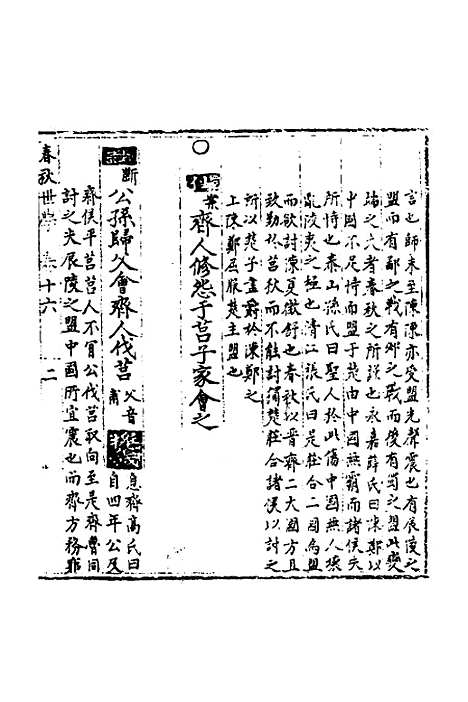 言也師未至陳陳亦受盟先聲震也有辰陵之
盟而有鄢之戰有邲之戰而後有蜀之盟此變
端之大者春秋之所謹也永嘉薛氏曰陳鄭以
中國不足恃而盟于楚由中國無霸而諸侯失
所恃也泰山孫氏曰聖人於此傷中國無人壞
亂陵夷之極也清江張氏曰是莊合二國為盟
而欲討陳夏徵舒也春秋以晉齊二大國方且
致勤於莒狄而不能討獨楚莊合諸侯以討之
所以楚子書爵於陳鄭之
上陳鄭屈服楚主盟也
齊人修怨于莒子家會之
斷
公孫歸父會齊人伐莒
父音
甫
息齊高氏曰
自四年公及
齊侯平莒莒人不肯公伐莒取向至是齊曹同
討之夫辰陵之盟中國所宜震也而齊方務非
春秋世學 卷十六 二